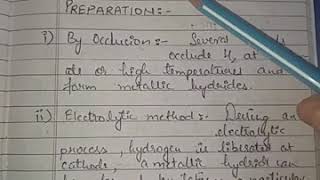 PREPARATION:-
i) By Occlusion:- Several
occlude H₂ at
or high temperatures and
form metallic hydrides.
ii) Electrolytic method:- During an
electrolytic
process, hydrogen is liberated at
cathode, a metallic hydride can